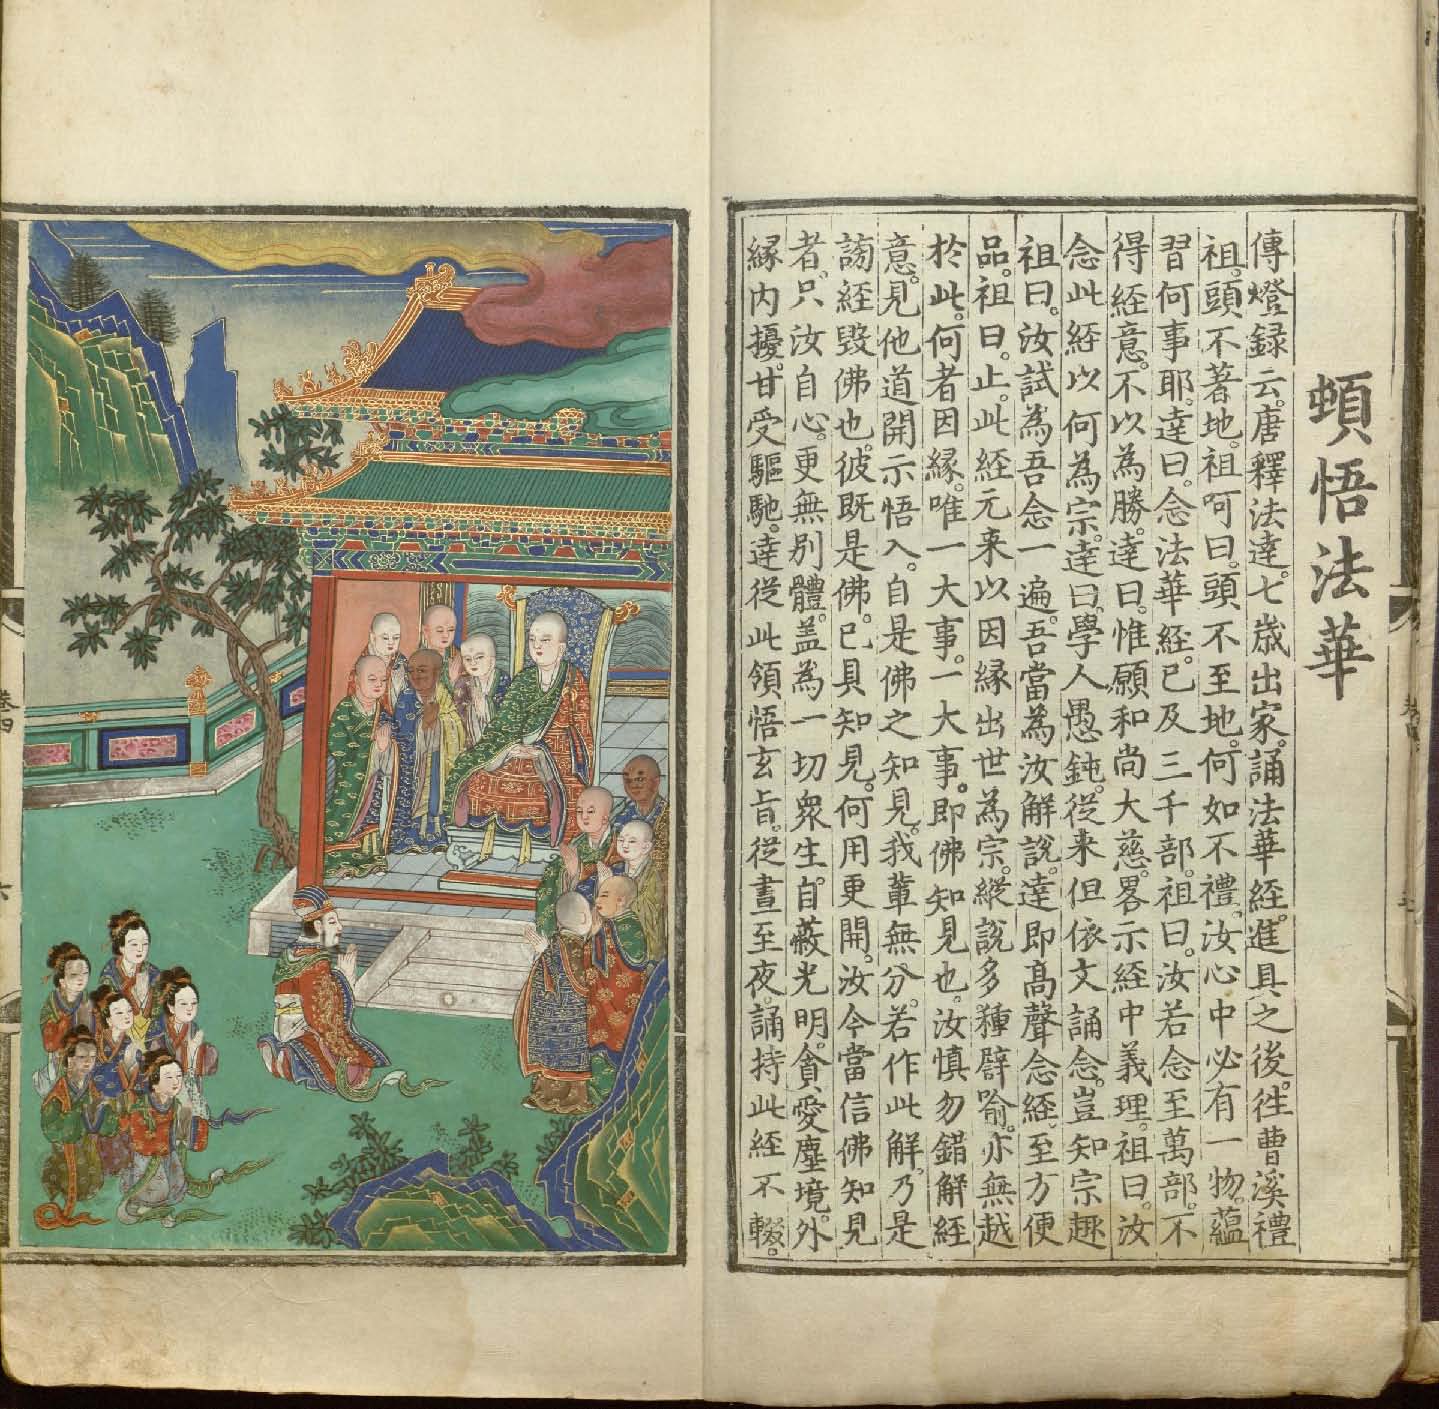 頓悟法華
傳燈録云。唐釋法達。七歲出家。誦法華經。進具之後。往曹溪禮
祖。頭不著地。祖呵曰。頭不至地。何如不禮。汝心中必有一物。蘊
習何事耶。達曰。念法華經。已及三千部。祖曰。汝若念至萬部。不
得経意。不以為勝。達曰。惟願和尚大慈。畧示經中義理。祖曰。汝
念此經以何為宗。達曰。學人愚鈍。從来但依文誦念。豈知宗趣
祖曰。汝試為吾念一遍。吾當為汝解說。達即高聲念經、至方便
品。祖曰。止。此經元来以因緣出世為宗。縱說多種辟喻。亦無越
於此。何者因緣。唯一大事。一大事。即佛知見也。汝慎勿錯解經
意。見他道開示悟入。自是佛之知見。我輩無分。若作此解。乃是
謗經毀佛也。彼既是佛。已具知見。何用更開。汝今當信佛知見
者。只汝自心。更無別體。盖為一切眾生。自蔽光明。貪愛塵境。外
緣内擾。甘受驅馳。達從此領悟玄旨。從晝至夜。誦持此經不輟。
卷四
六